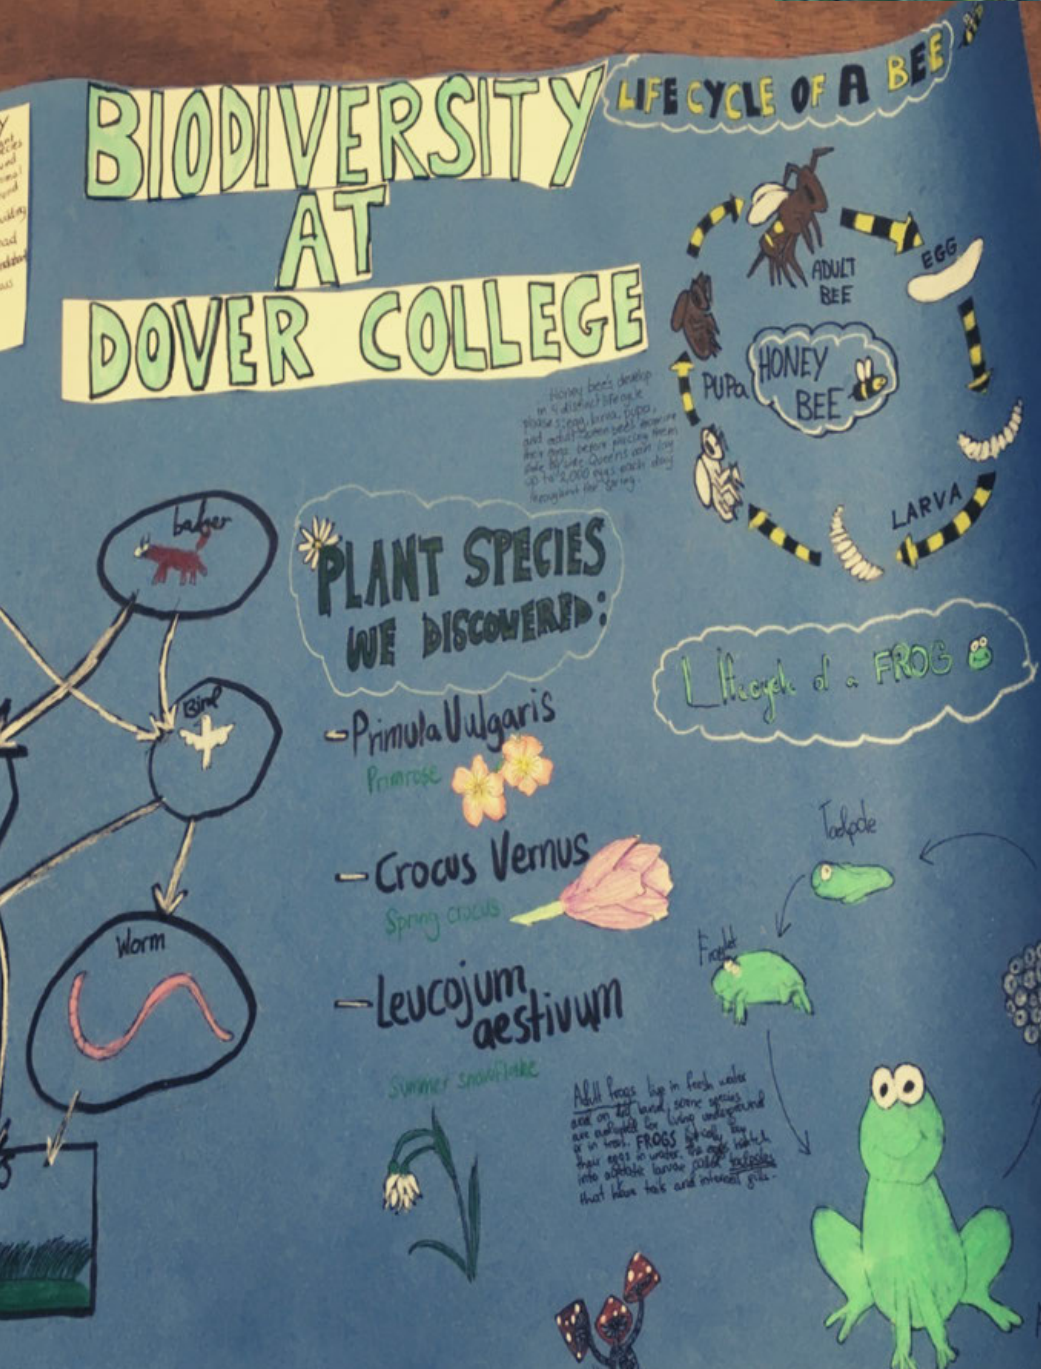 BIODIVERSITY
AT
DOVER COLLEGE
LIFE CYCLE OF A BEE
ADULT
BEE
EGG
HONEY
BEE
PUPa
LARVA
Honey bee's develop
in 4 distinct lifecycle
phases: egg, larva, pupa,
and adult
their eggs before placing them
Queens can lay
up to 2,000 eggs each day
throughout the Spring.
badger
Bird
Worm
PLANT SPECIES
WE DISCOVERED:
-Primula Vulgaris
Primrose
- Crocus Vernus
Spring crocus
- Leucojum
aestivum
Summer snowflake
Lifecycle of a FROG
Tadpole
Froglet
Adult frogs live in fresh water
and on dry land; some species
are adapted for living underground
or in trees. FROGS typically lay
their eggs in water. The eggs hatch
into aquatic larvae called tadpoles
that have tails and internal gills.